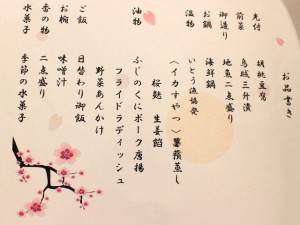 お品書き
先付 胡桃豆腐
前菜 烏賊三升漬
御造り 地魚二点盛り
お鍋 海鮮鍋
温物 いとう漁協発
〈イカすやつ〉薯蕷蒸し
桜麩 生姜餡
油物 ふじのくにポーク唐揚
フライドラディッシュ
野菜あんかけ
ご飯 日替わり御飯
お椀 味噌汁
香の物 二点盛り
水菓子 季節の水菓子